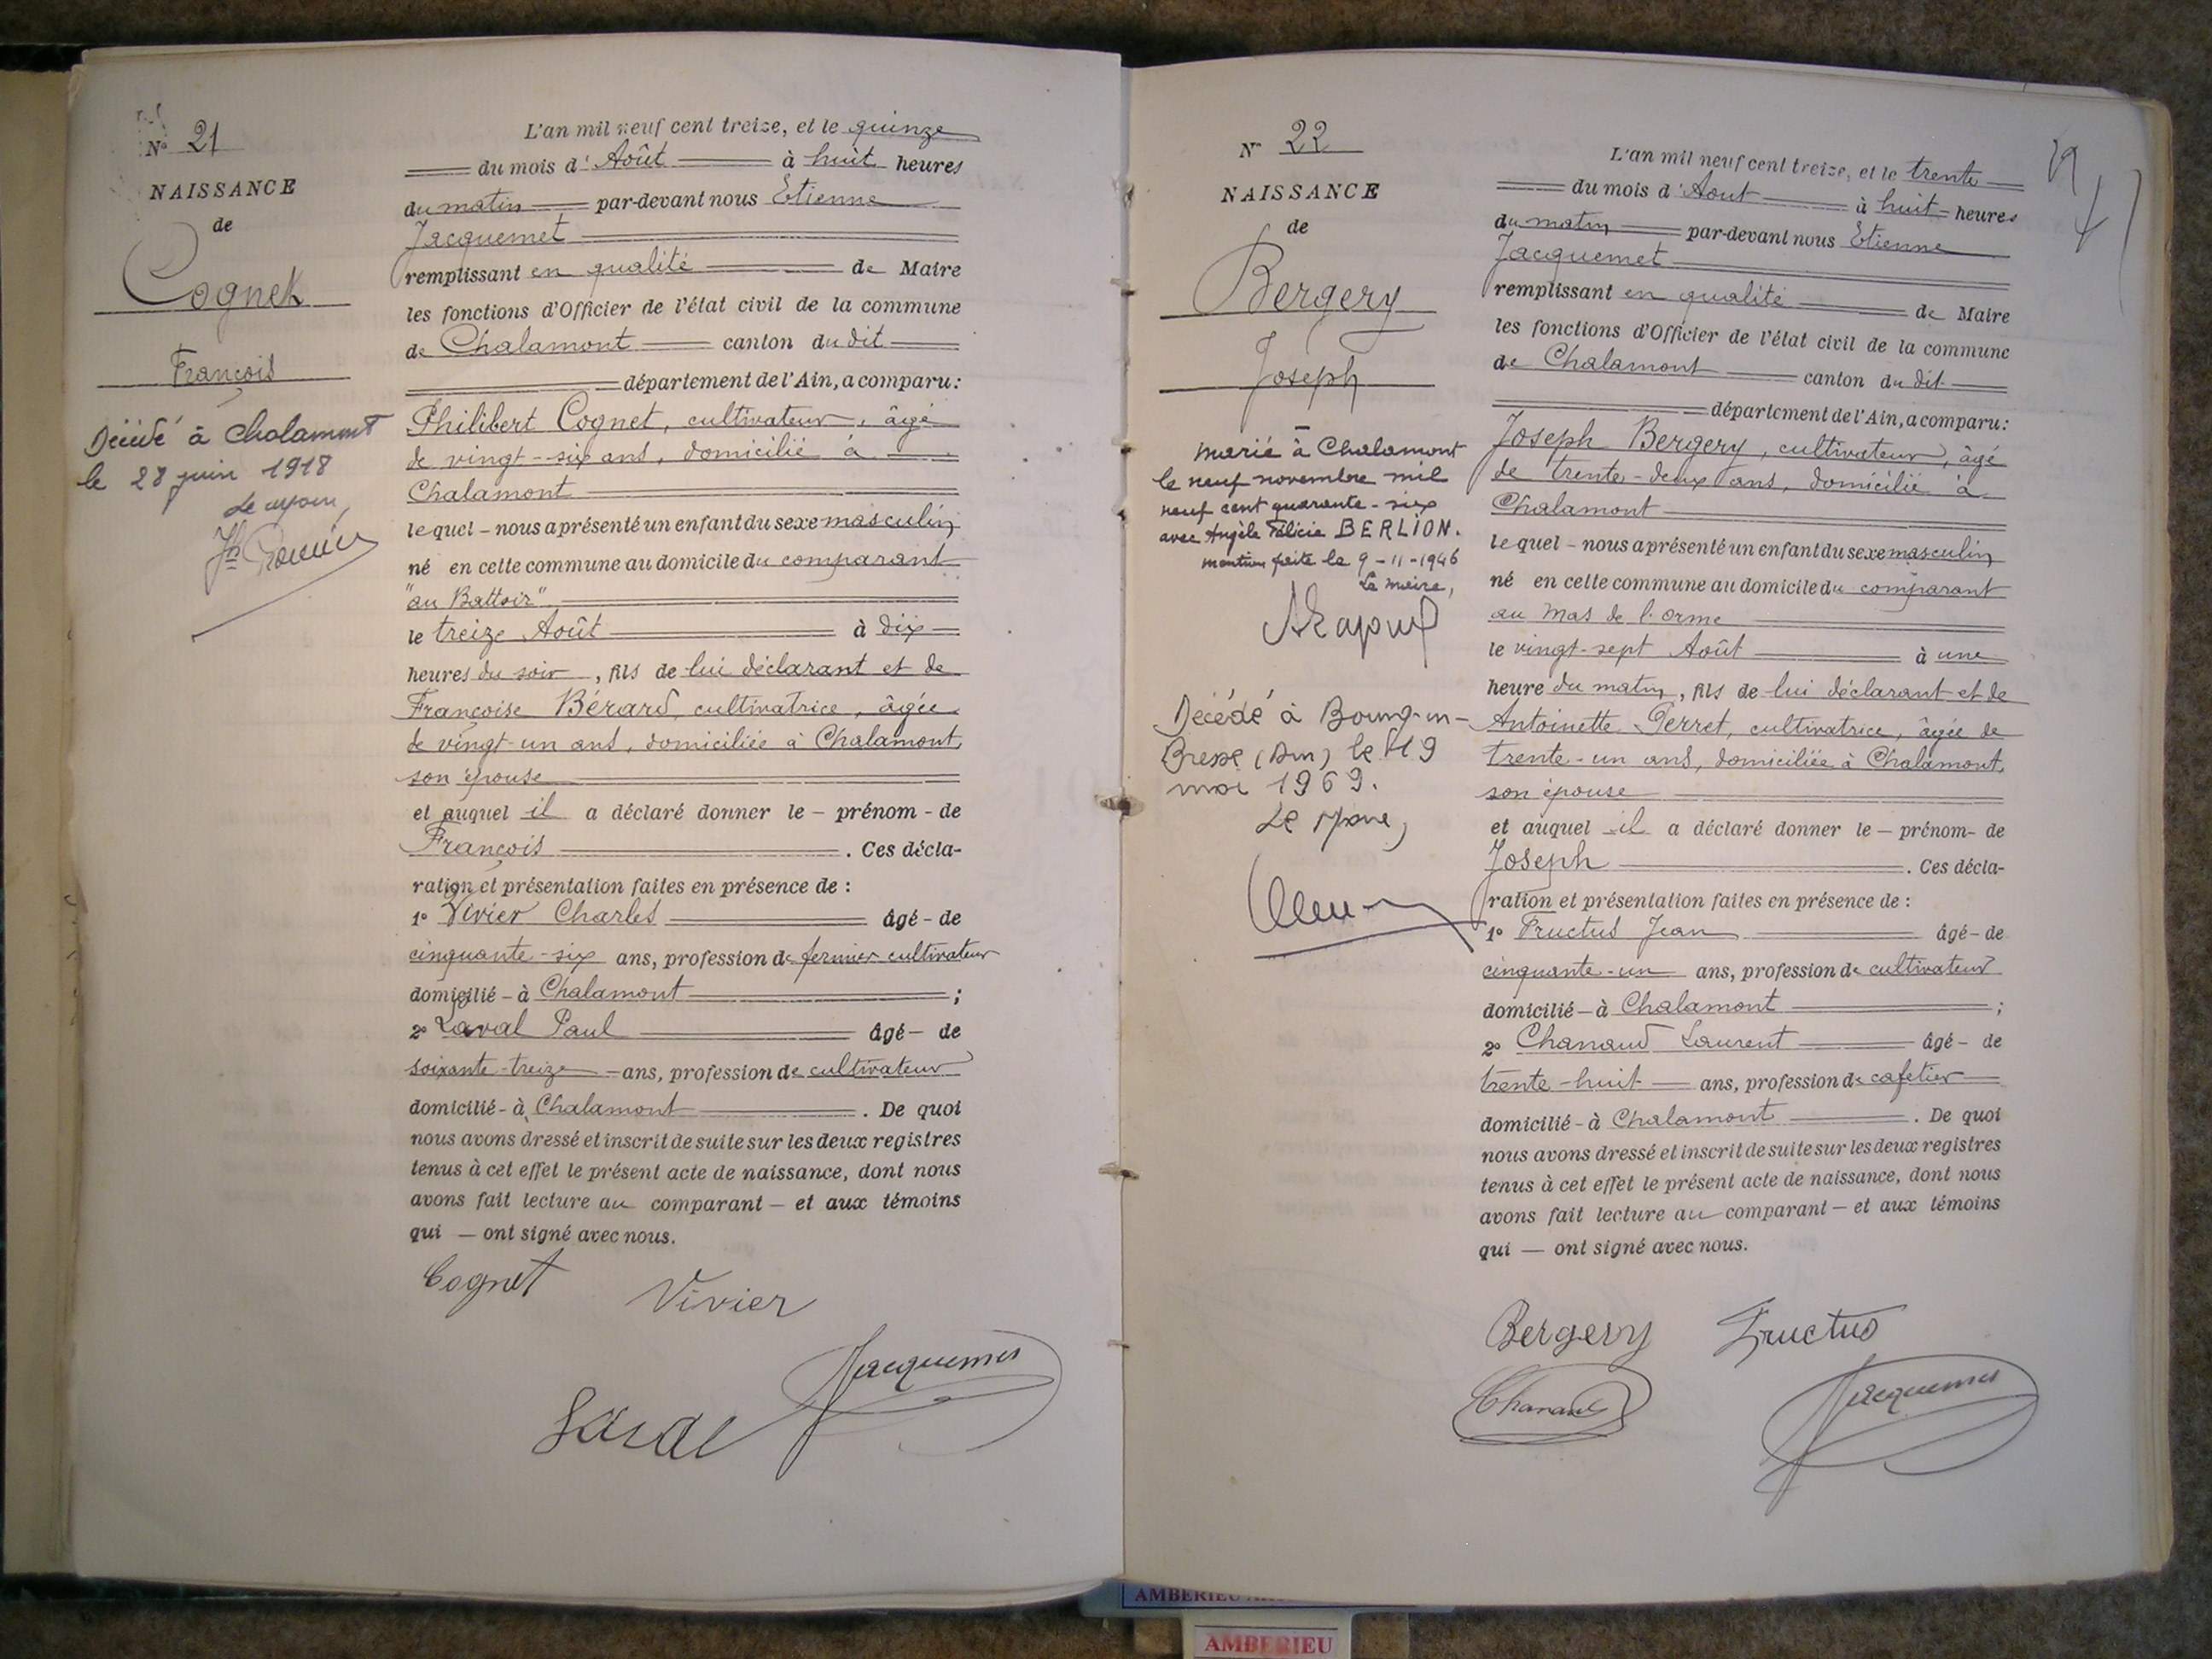 N° 21
NAISSANCE
de
Cognet
François
Décédé à Chalamont
le 28 juin 1918
L'an mil neuf cent treize, et le quinze
du mois d' Août à huit heures
du matin par-devant nous Etienne
Jacquemet
remplissant en qualité de Maire
les fonctions d'Officier de l'état civil de la commune
de Chalamont canton du dit
département de l'Ain, a comparu:
Philibert Cognet, cultivateur, âgé
de vingt-six ans, domicilié à
Chalamont
lequel - nous a présenté un enfant du sexe masculin
né en cette commune au domicile du comparant
"au Battoir"
le treize Août à dix
heures du soir, fils de lui déclarant et de
Françoise Bérard, cultivatrice, âgée
de vingt-un ans, domiciliée à Chalamont,
son épouse
et auquel il a déclaré donner le - prénom - de
François. Ces décla-
ration et présentation faites en présence de :
1° Vivier Charles âgé - de
cinquante-six ans, profession de fermier cultivateur
domicilié - à Chalamont ;
2° Laval Paul âgé - de
soixante-treize ans, profession de cultivateur
domicilié - à Chalamont. De quoi
nous avons dressé et inscrit de suite sur les deux registres
tenus à cet effet le présent acte de naissance, dont nous
avons fait lecture au comparant - et aux témoins
qui - ont signé avec nous.
Cognet Vivier
Jacquemet
Laval
N° 22
NAISSANCE
de
Bergery
Joseph
marié à Chalamont
le neuf novembre mil
neuf cent quarante-six
avec Angèle Félicie BERLION.
mention faite le 9-11-1946
Le maire,
Décédé à Bourg-en-
Bresse (Ain) le 19
mai 1969.
Le Maire,
L'an mil neuf cent treize, et le trente
du mois d' Aout à huit heures
du matin par-devant nous Etienne
Jacquemet
remplissant en qualité de Maire
les fonctions d'Officier de l'état civil de la commune
de Chalamont canton du dit
département de l'Ain, a comparu:
Joseph Bergery, cultivateur, âgé
de trente-deux ans, domicilié à
Chalamont
lequel - nous a présenté un enfant du sexe masculin
né en cette commune au domicile du comparant
au Mas de l'orme
le vingt-sept Août à une
heure du matin, fils de lui déclarant et de
Antoinette Perret, cultivatrice, âgée de
trente-un ans, domiciliée à Chalamont,
son épouse
et auquel il a déclaré donner le - prénom - de
Joseph. Ces décla-
ration et présentation faites en présence de :
1° Fructus Jean âgé - de
cinquante-un ans, profession de cultivateur
domicilié - à Chalamont ;
2° Chanaud Laurent âgé - de
trente-huit ans, profession de cafetier
domicilié - à Chalamont. De quoi
nous avons dressé et inscrit de suite sur les deux registres
tenus à cet effet le présent acte de naissance, dont nous
avons fait lecture au comparant - et aux témoins
qui - ont signé avec nous.
Bergery Fructus
Chanaud Jacquemet
AMBERIEU
AMBERIEU